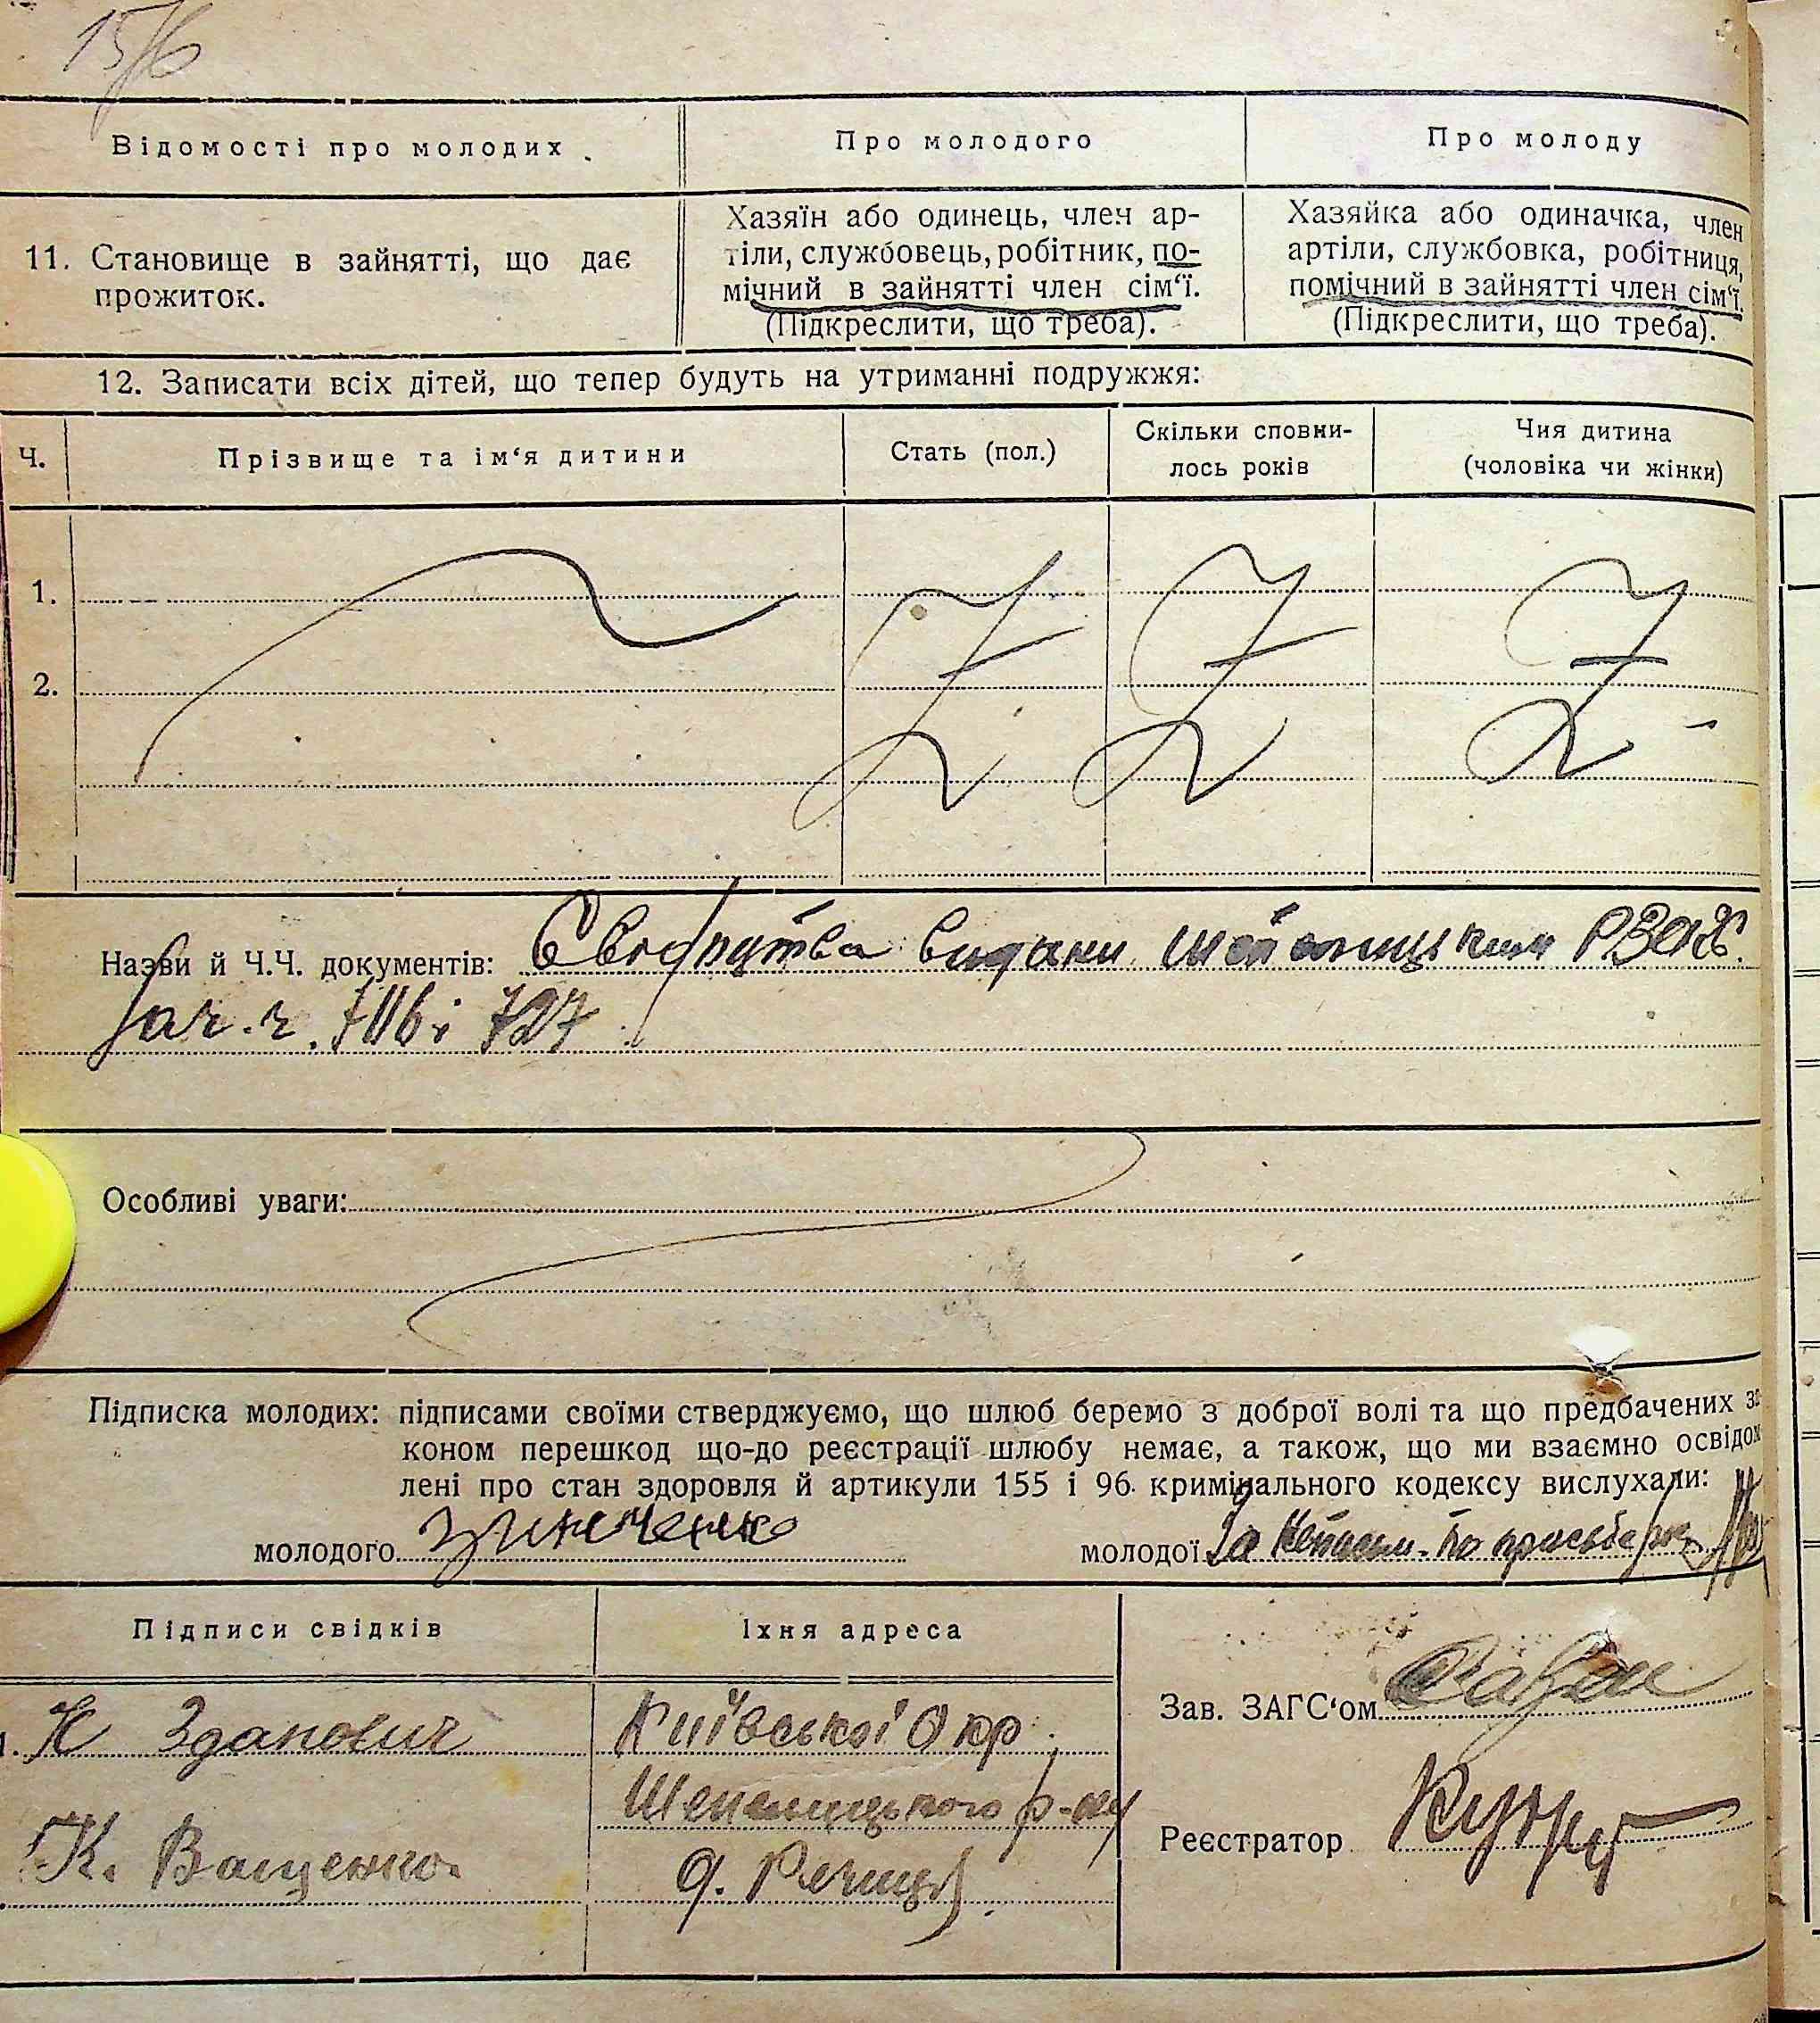 Відомості про молодих
Про молодого
Про молоду
11. Становище в зайнятті, що дає
прожиток.
Хазяїн або одинець, член ар-
тіли, службовець, робітник, по-
мічний в зайнятті член сім‘ї.
(Підкреслити, що треба).
Хазяйка або одиначка, член
артіли, службовка, робітниця,
помічний в зайнятті член сім‘ї.
(Підкреслити, що треба).
12. Записати всіх дітей, що тепер будуть на утриманні подружжя:
Ч.
Прізвище та ім‘я дитини
Стать (пол.)
Скільки сповни-
лось років
Чия дитина
(чоловіка чи жінки)
1.
2.
Назви й Ч.Ч. документів: видани РЗАГС.
727
Особливі уваги:
Підписка молодих: підписами своїми стверджуємо, що шлюб беремо з доброї волі та що предбачених за
коном перешкод що-до реєстрації шлюбу немає, а також, що ми взаємно освідом
лені про стан здоровля й артикули 155 і 96 кримінального кодексу вислухали:
молодого Зинченко
молодої За
Підписи свідків
Їхня адреса
Зав. ЗАГС‘ом
Н Зданович
Київської Окр.
Шепелицького р-ну
Реєстратор
К. Ващенко.